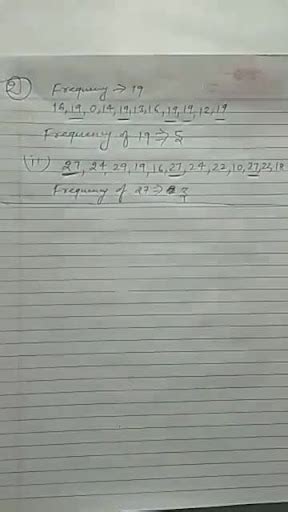 2) Frequency → 19
15, 19, 0, 14, 19, 13, 16, 19, 19, 12, 19
Frequency of 19 ⇒ 5
(ii) 27, 24, 29, 19, 16, 27, 24, 22, 10, 27, 22, 18
Frequency of 27 ⇒ 3